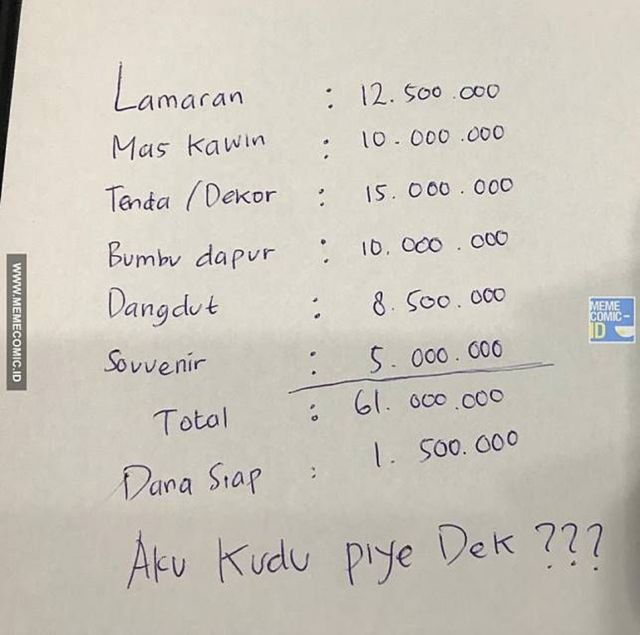 Lamaran : 12.500.000
Mas Kawin : 10.000.000
Tenda / Dekor : 15.000.000
Bumbu dapur : 10.000.000
Dangdut : 8.500.000
Souvenir : 5.000.000
Total : 61.000.000
Dana Siap : 1.500.000
Aku Kudu piye Dek ???
WWW.MEMECOMIC.ID
MEME
COMIC-
ID